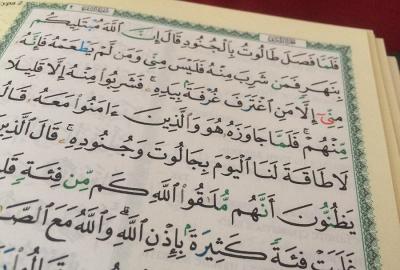 فَلَمَّا فَصَلَ طَالُوتُ بِالْجُنُودِ قَالَ إِنَّ اللَّهَ مُبْتَلِيكُم
بِنَهَرٍ فَمَن شَرِبَ مِنْهُ فَلَيْسَ مِنِّي وَمَن لَّمْ يَطْعَمْهُ فَإِنَّهُ
مِنِّي إِلَّا مَنِ اغْتَرَفَ غُرْفَةً بِيَدِهِ ۚ فَشَرِبُوا مِنْهُ إِلَّا قَلِيلًا
مِّنْهُمْ ۚ فَلَمَّا جَاوَزَهُ هُوَ وَالَّذِينَ ءَامَنُوا مَعَهُ قَالُوا
لَا طَاقَةَ لَنَا الْيَوْمَ بِجَالُوتَ وَجُنُودِهِ ۚ قَالَ الَّذِينَ
يَظُنُّونَ أَنَّهُم مُّلَاقُوا اللَّهِ كَم مِّن فِئَةٍ
غَلَبَتْ فِئَةً كَثِيرَةً بِإِذْنِ اللَّهِ ۗ وَاللَّهُ مَعَ